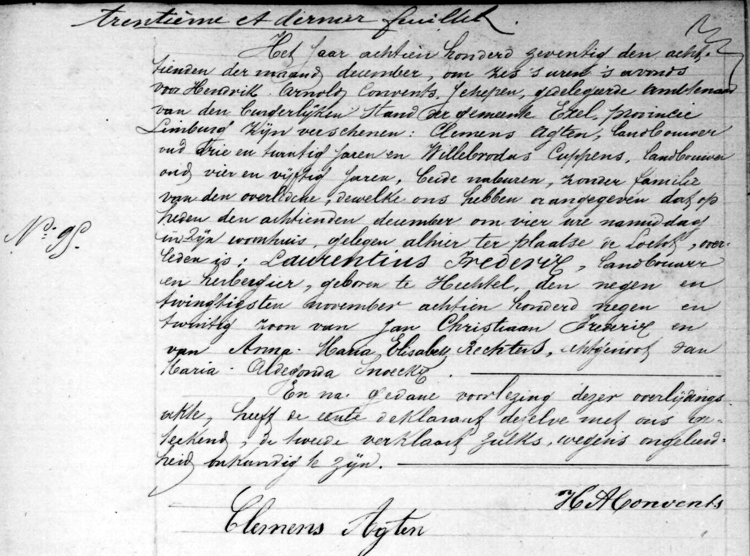 trentième et dernier feuillet.
Het jaar achtien honderd zeventig den acht-
tienden der maand december, om zes uren 's avonds
voor Hendrik Arnold Convents, Schepen, gedelegeerde Ambtenaar
van den burgerlijken Stand der gemeente Exel, provincie
Limburg zijn verschenen: Clemens Agten, landbouwer
oud drie en twintig jaren en Willebrodus Cuppens, landbouwer
oud vier en vijftig jaren, beide naburen, zonder familie
van den overledene, dewelke ons hebben aangegeven dat op
heden den achtienden december om vier ure namiddag
in zijn woonhuis, gelegen alhier ter plaatse de Locht, over-
leden is: Laurentius Frederix, landbouwer
en herbergier, geboren te Hechtel, den negen en
twingtigsten november achtien honderd negen en
twintig zoon van Jan Christiaan Frederix en
van Anna Maria Elisabeth Rechters, echtgenoot van
Maria Aldegonda Snoeckx.
En na gedane voorlezing dezer overlijdings-
akte, heeft de eerste deklarant dezelve met ons ge-
teekend, de tweede verklaart zulks, wegens ongeleerd-
heid onkundig te zijn.
No. 95.
H A Convents
Clemens Agten